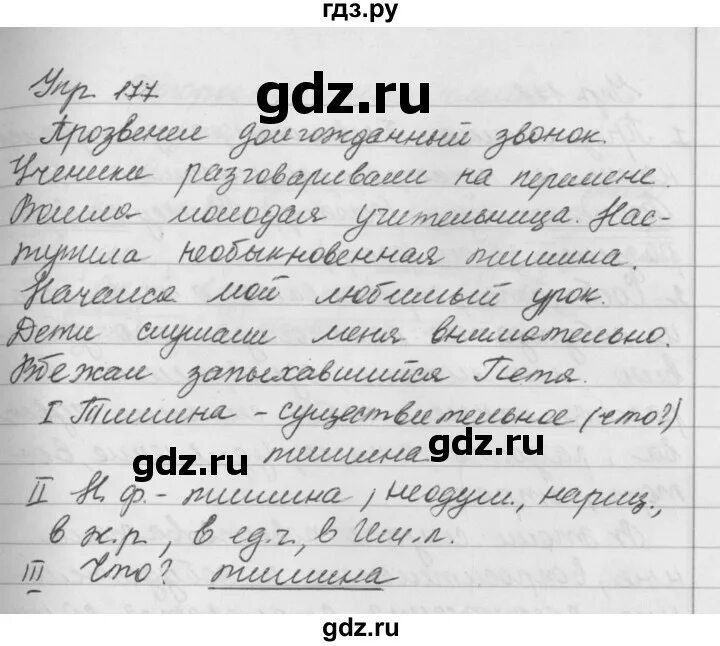 гдз.ру
Упр. 177
gdz.ru
Прозвенел долгожданный звонок.
Ученики разговаривали на перемене.
Вошла молодая учительница. Нас-
тупила необыкновенная тишина.
Начался мой любимый урок.
Дети слушали меня внимательно.
Вбежал запыхавшийся Петя.
I Тишина - существительное (что?)
тишина
gdz.ru
gdz.ru
II Н.ф. - тишина, неодуш., нариц.,
в ж.р., в ед.ч, в Им.п.
III Что? тишина
gdz.ru
gdz.ru